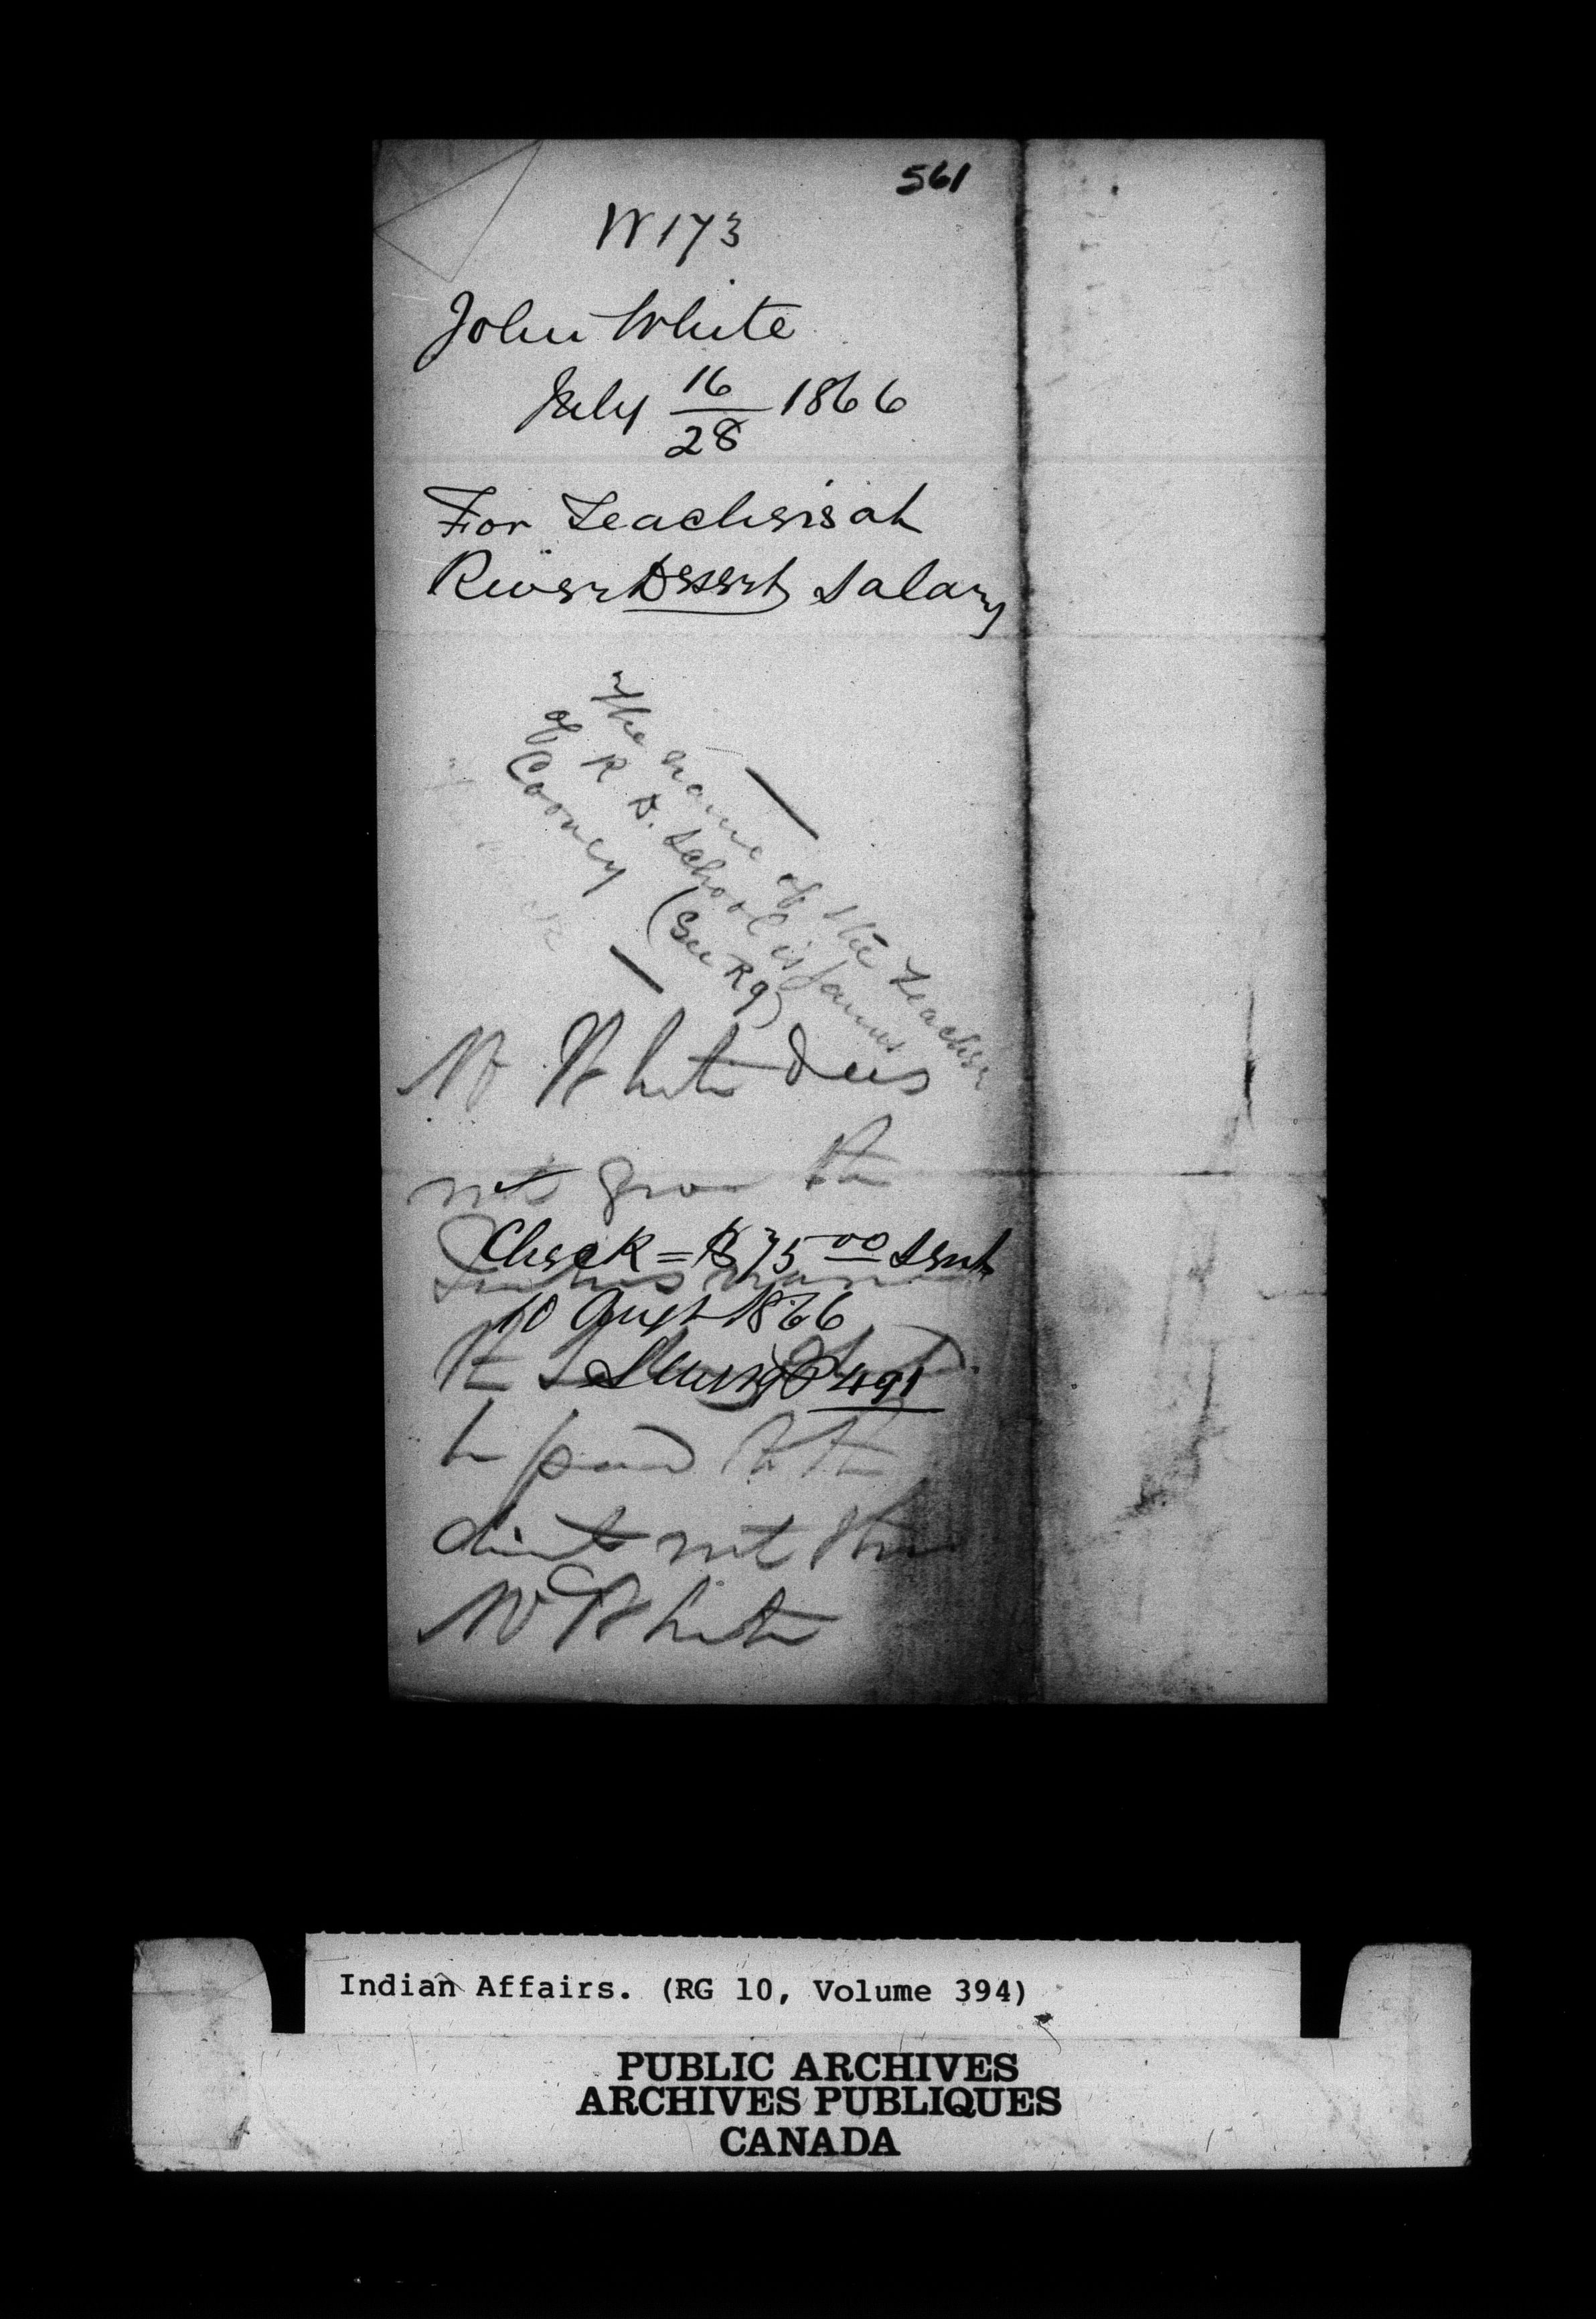 561
W173
John White
July 16/28 1866
For Teacher's at
River Desert Salary
The name of the Teacher
of R. D. School is James
Cooney (See R9)
Mr White does
not give the
Check = $75 00 sent
Teachers name
10 Augt 1866
be paid to the
direct not thro
Mr White
Indian Affairs. (RG 10, Volume 394)
PUBLIC ARCHIVES
ARCHIVES PUBLIQUES
CANADA